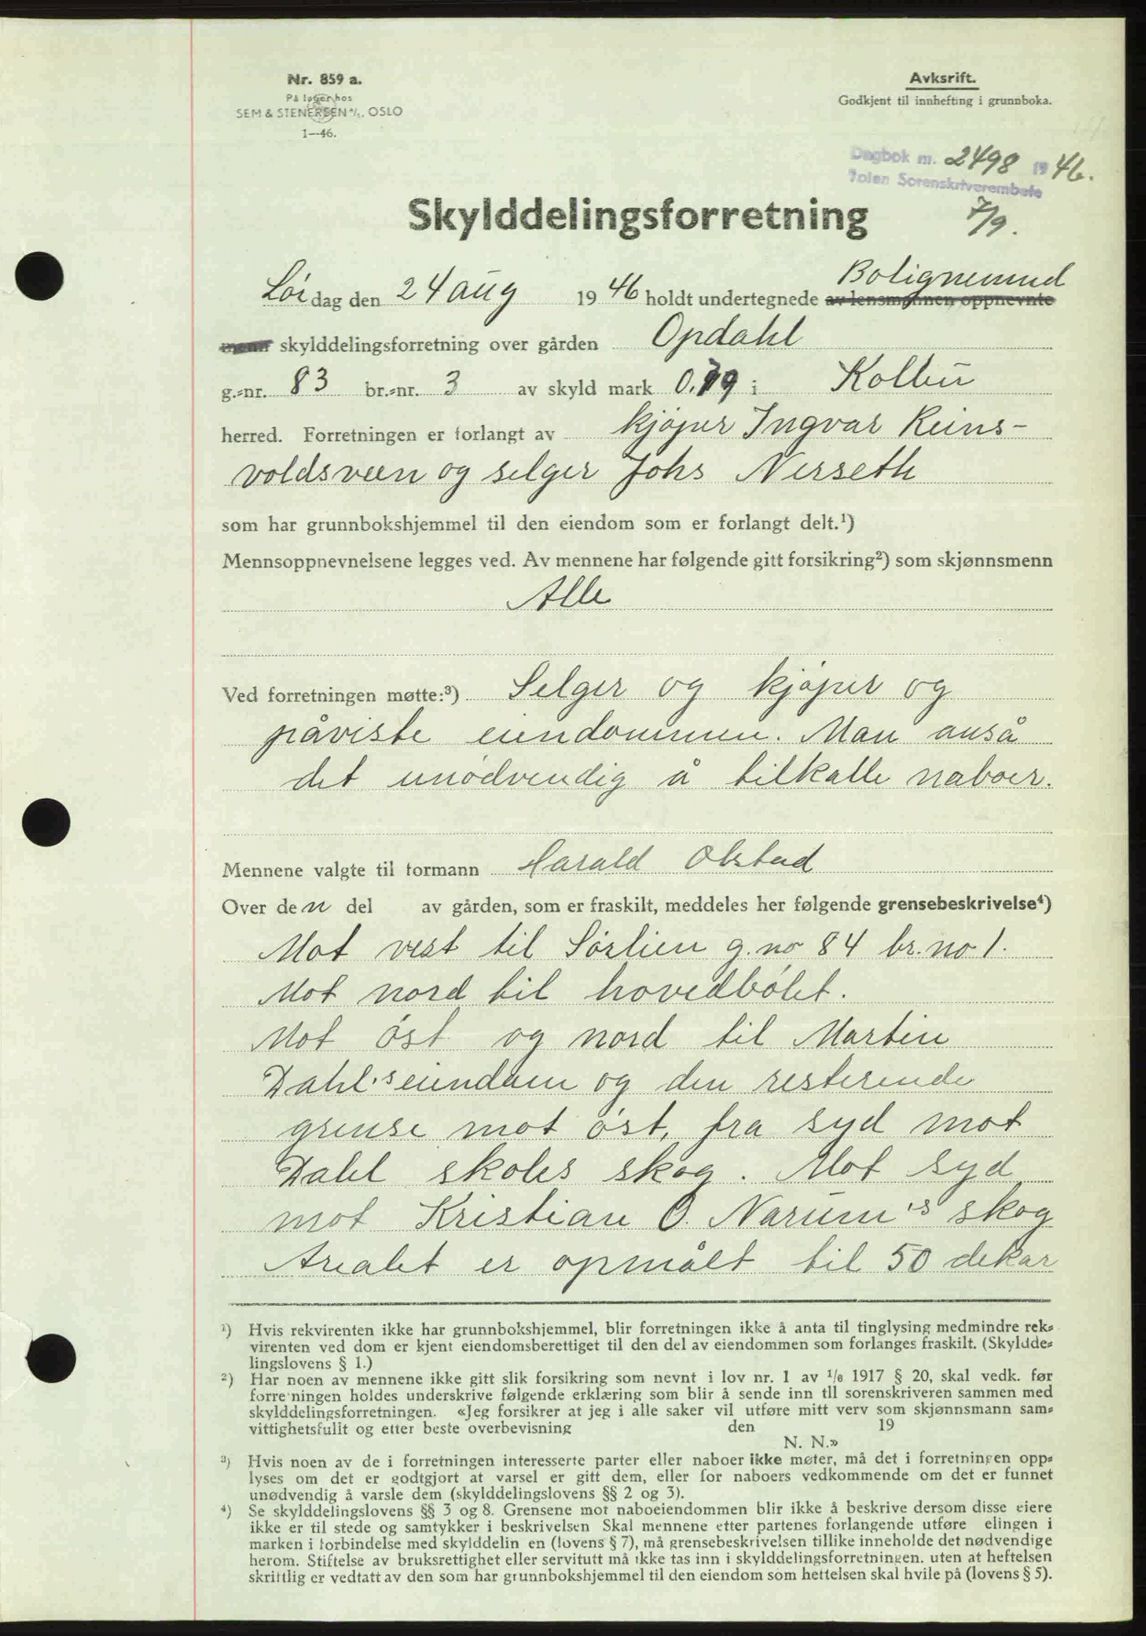 Nr. 859 a.
På lager hos
SEM & STENERSEN A/S, OSLO
1—46.
Avksrift.
Godkjent til innhefting i grunnboka.
Dagbok nr. 2498 1946.
Toten Sorenskriverembete
7/9.
Skylddelingsforretning
Lördag den 24 aug 1946 holdt undertegnede av lensmannen oppnevnte Bolignemnd
menn skylddelingsforretning over gården Opdahl
g.-nr. 83 br.-nr. 3 av skyld mark 0.79 i Kolbu
herred. Forretningen er forlangt av kjöper Ingvar Reins-
voldsveen og selger Johs Nerseth
som har grunnbokshjemmel til den eiendom som er forlangt delt.¹)
Mennsoppnevnelsene legges ved. Av mennene har følgende gitt forsikring²) som skjønnsmenn
Alle
Ved forretningen møtte:³) Selger og kjöper og
påviste eiendommen. Man anså
det unödvendig å tilkalle naboer.
Mennene valgte til formann Harald Olstad
Over den del av gården, som er fraskilt, meddeles her følgende grensebeskrivelse⁴)
Mot vest til Sörlien g.no 84 br.no 1.
Mot nord til hovedbölet.
Mot öst og nord til Martin
Dahl's eiendom og den resterende
grense mot öst, fra syd mot
Dahl skoles skog. Mot syd
mot Kristian O. Narum's skog
Arealet er opmålt til 50 dekar
¹) Hvis rekvirenten ikke har grunnbokshjemmel, blir forretningen ikke å anta til tinglysing medmindre rek-
virenten ved dom er kjent eiendomsberettiget til den del av eiendommen som forlanges fraskilt. (Skyldde-
lingslovens § 1.)
²) Har noen av mennene ikke gitt slik forsikring som nevnt i lov nr. 1 av 1/6 1917 § 20, skal vedk. før
forretningen holdes underskrive følgende erklæring som blir å sende inn til sorenskriveren sammen med
skylddelingsforretningen. «Jeg forsikrer at jeg i alle saker vil utføre mitt verv som skjønnsmann sam-
vittighetsfullt og etter beste overbevisning den 19
N. N.»
³) Hvis noen av de i forretningen interesserte parter eller naboer ikke møter, må det i forretningen opp-
lyses om det er godtgjort at varsel er gitt dem, eller for naboers vedkommende om det er funnet
unødvendig å varsle dem (skylddelingslovens §§ 2 og 3).
⁴) Se skylddelingslovens §§ 3 og 8. Grensene mot naboeiendommen blir ikke å beskrive dersom disse eiere
ikke er til stede og samtykker i beskrivelsen Skal mennene etter partenes forlangende utføre elingen i
marken i forbindelse med skylddelin en (lovens § 7), må grensebeskrivelsen tillike inneholde det nødvendige
herom. Stiftelse av bruksrettighet eller servitutt må ikke tas inn i skylddelingsforretningen. uten at heftelsen
skriftlig er vedtatt av den som har grunnbokshjemmel til den eiendom som heftelsen skal hvile på (lovens § 5).